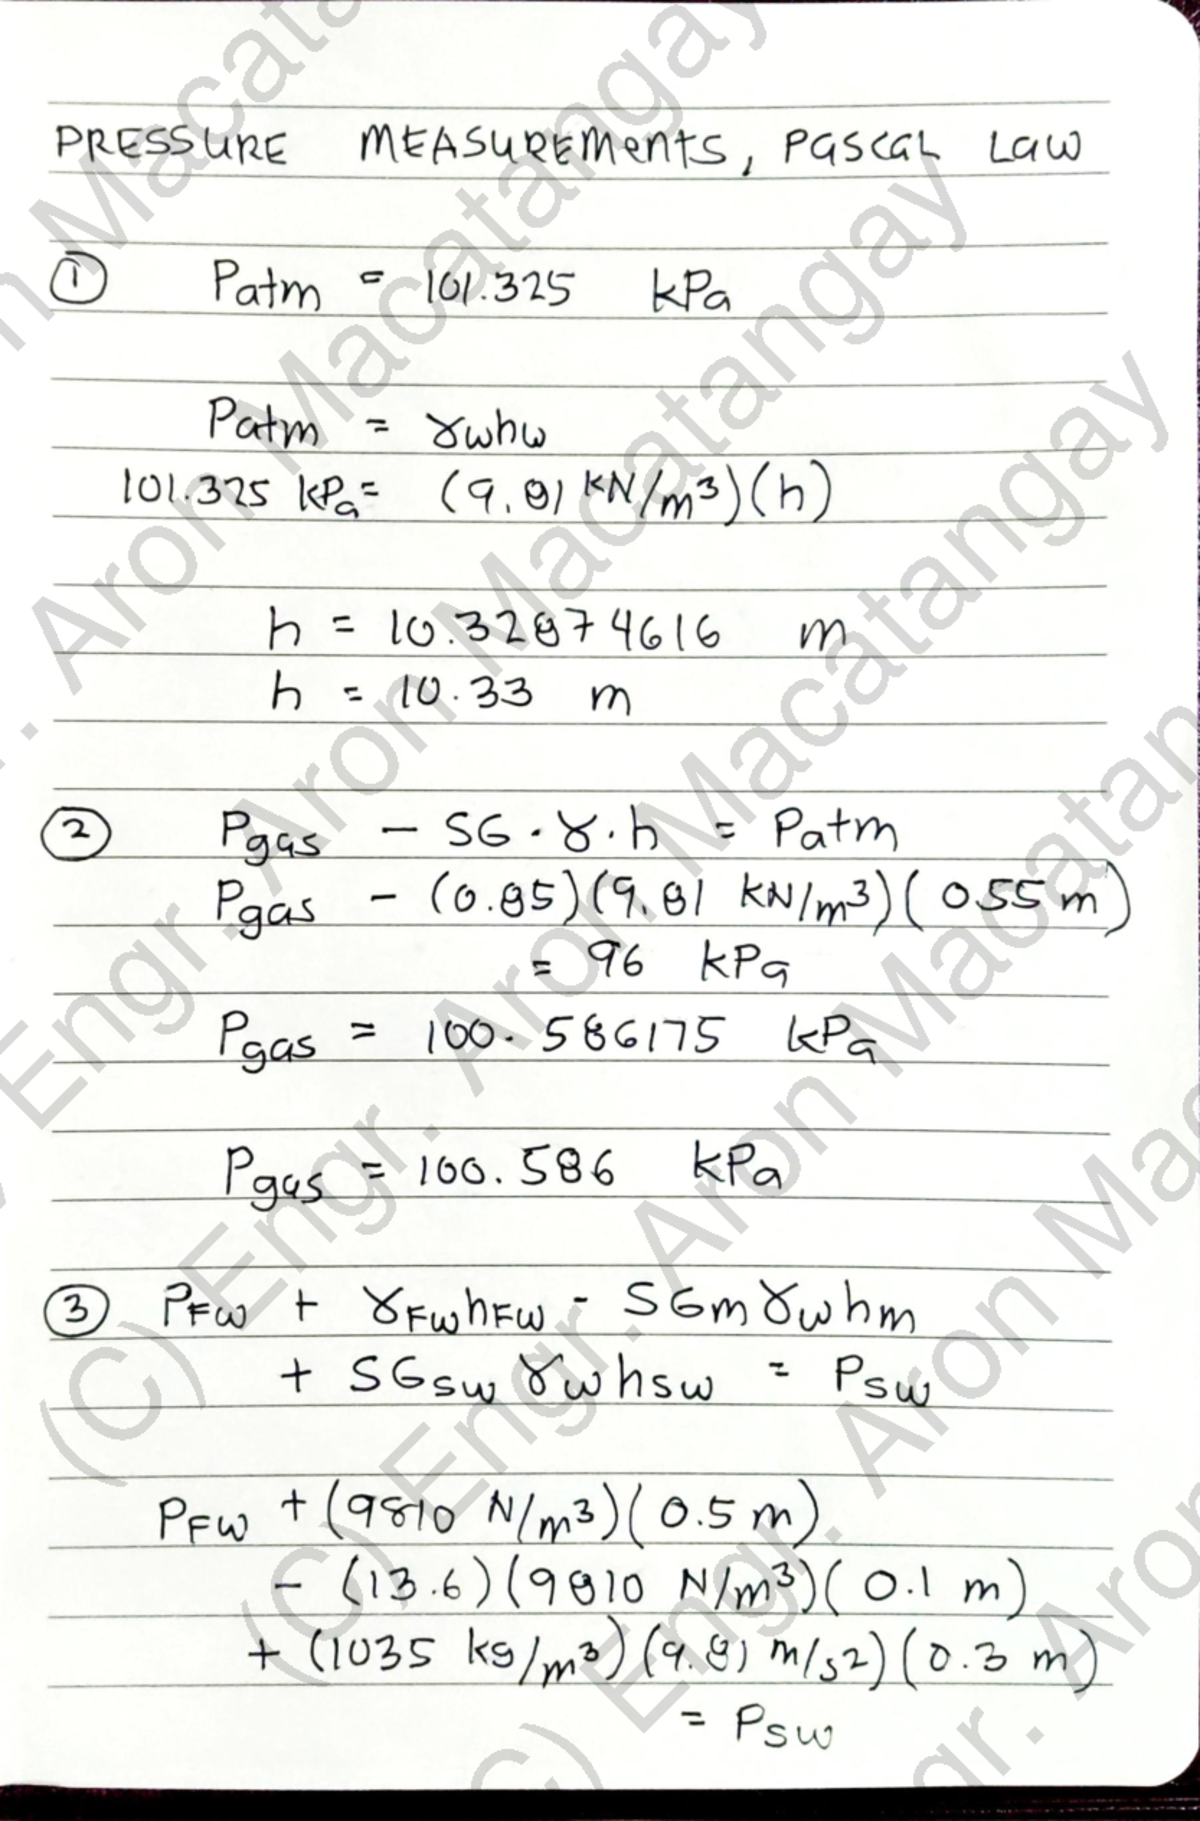 PRESSURE MEASUREMENTS, PASCAL LAW
① Patm = 101.325 kPa
Patm = γwhw
101.325 kPa = (9.81 kN/m³)(h)
h = 10.32874616 m
h = 10.33 m
② Pgas - SG·γ·h = Patm
Pgas - (0.85)(9.81 kN/m³)(0.55 m)
= 96 kPa
Pgas = 100.586175 kPa
Pgas = 100.586 kPa
③ PFW + γFWhFW - SGmγwhm
+ SGSWγwhSW = PSW
PFW + (9810 N/m³)(0.5 m)
- (13.6)(9810 N/m³)(0.1 m)
+ (1035 kg/m³)(9.81 m/s²)(0.3 m)
= PSW
(C) Engr. Aron Macatangay